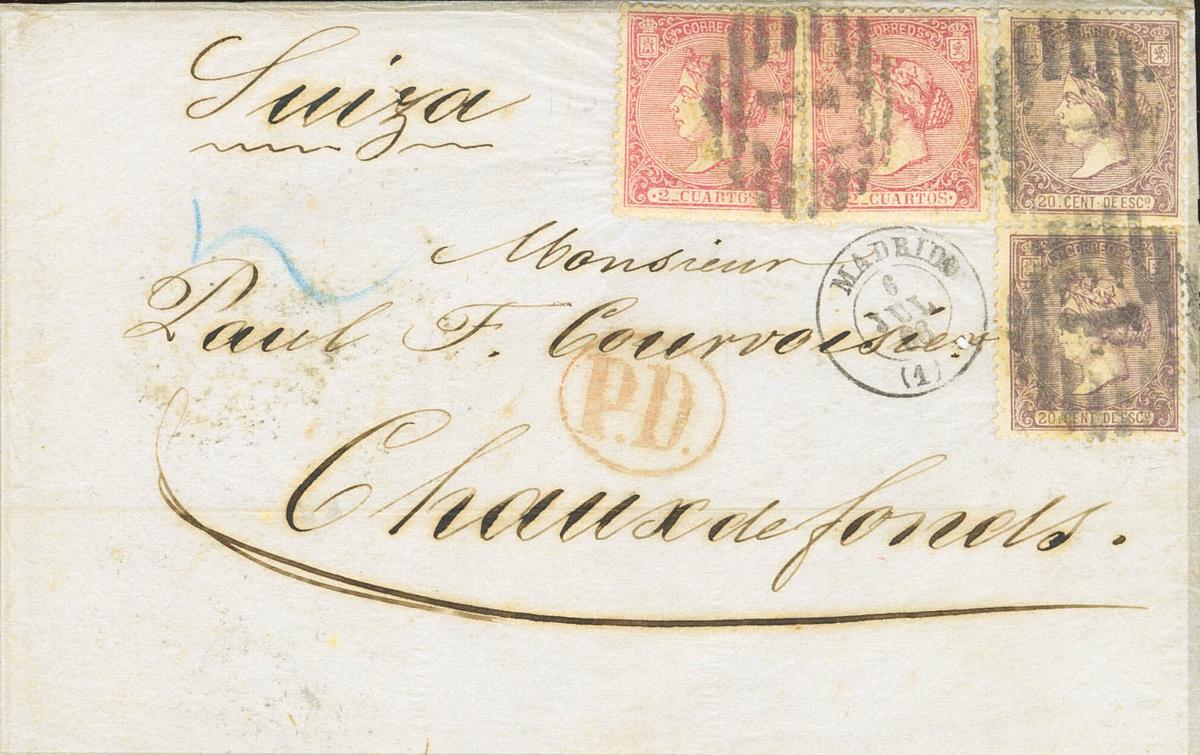 CORREOS
2_CUARTOS
CORREOS
2_CUARTOS
CORREOS
20.CENT.DE ESCº
CORREOS
20.CENT.DE ESCº
Suiza
Monsieur
Paul F. Courvoisier
Chaux de fonds.
MADRID
6
JUL
(1)
P.D.